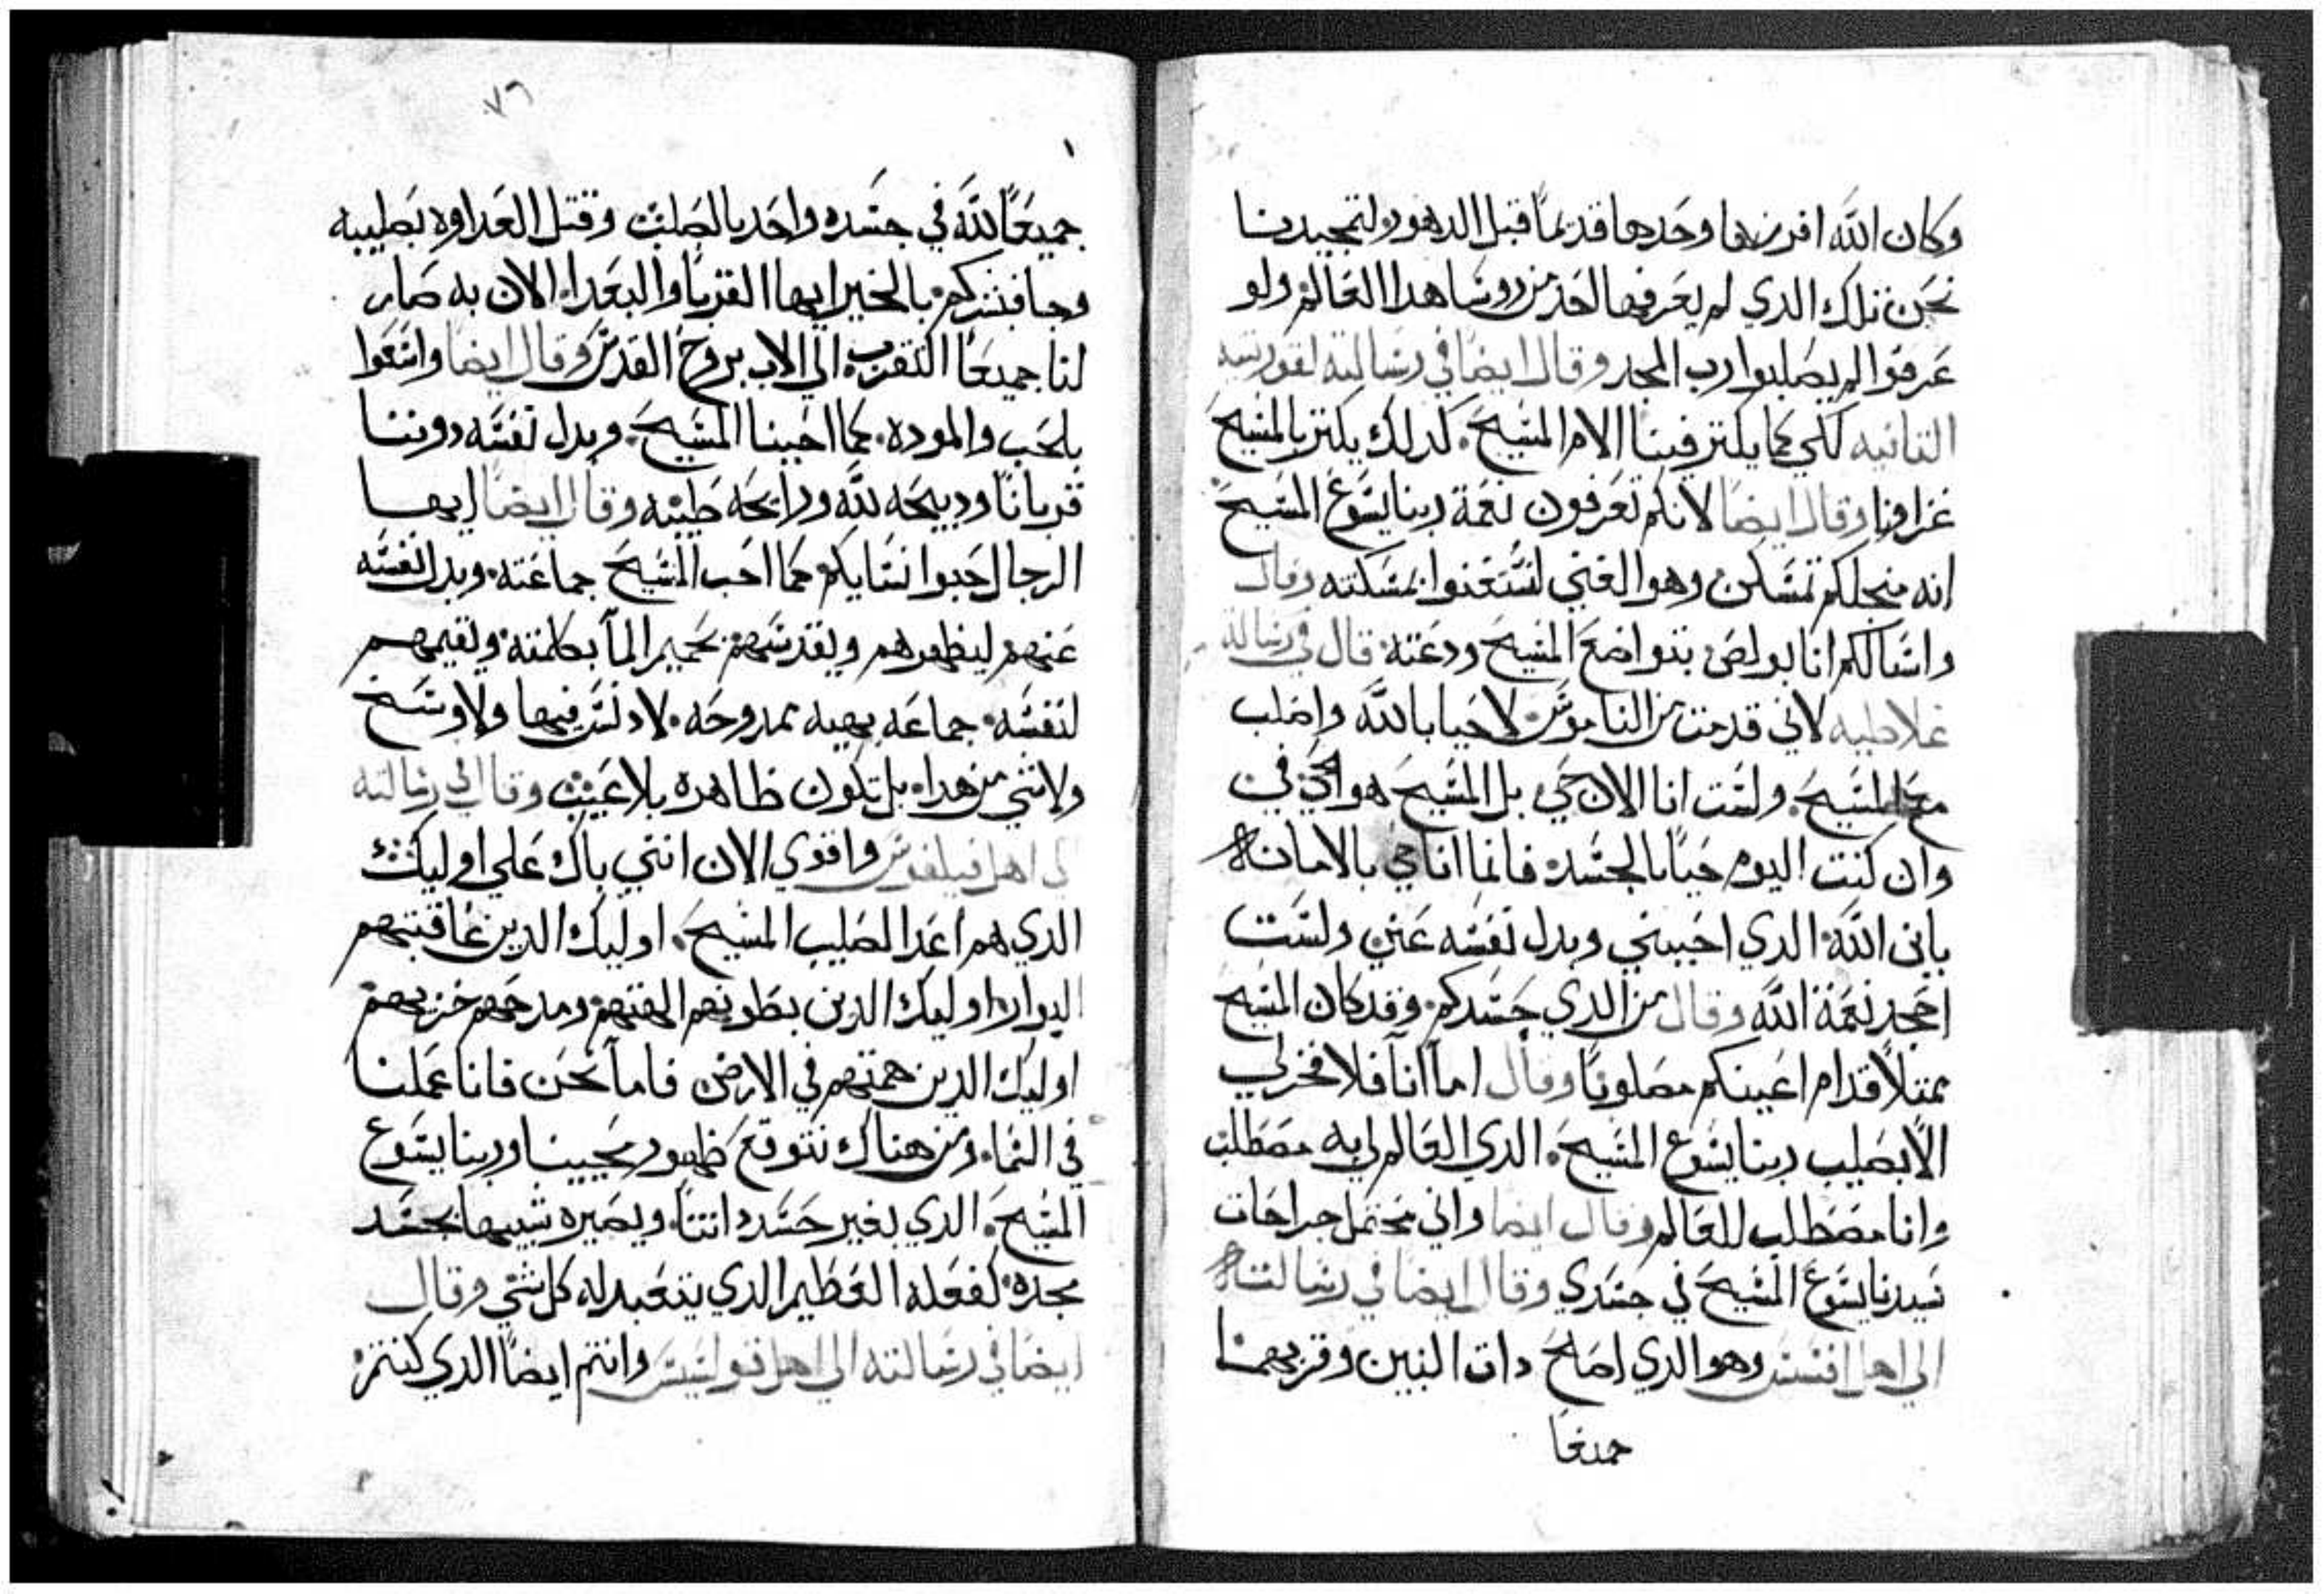 وكان الله افرزها وحدها قديمًا قبل الدهور ولتمجيدنا
نحن تلك الدي لم يعرفها احد من روسا هدا العالم ولو
عرفوا لم يصلبوا رب المجد وقال ايضًا في رسالته لقورنتيه
التانيه لكي كما يكتر فينا الام المسيح. كدلك يكتر بالمسيح
عزاونا وقال ايضا لانكم تعرفون نعمة ربنا يسوع المسيح
انه منجلكم تمسكن وهو الغني لتستغنوا بمسكنته وقال
واسالكم انا بولص بتواضع المسيح ودعته قال في رساله
غلاطيه لاني قد مت من الناموس لاحيا بالله واصلب
مع المسيح. ولست انا الان حي بل المسيح هو الحي في
وان كنت اليوم حيًا بالجسد فانما انا حي بالامانه
بابن الله الدي احببني وبدل نفسه عني ولست
اجحد نعمة الله وقال من الدي حسدكم. وقد كان المسيح
ممتلاً قدام اعينكم مصلوبًا وقال اما انا فلا فخر لي
الا بصليب ربنا يسوع المسيح. الدي العالم لي به مصطلب
وانا مصطلب للعالم وقال ايضا واني محتمل جراحات
سيدنا يسوع المسيح في جسدي وقال ايضا في رسالته
الى اهل افسس وهو الدي اصلح دات البين وقربهما
جميعًا
٧٦
جميعًا لله في جسده واحد بالصليب وقتل العداوه بصليبه
وجا فبشركم بالخير ايها القربا والبعدا. الان به صار
لنا جميعًا التقرب الى الاب بروح القدس وقال ايضا واسعوا
بالحب والموده. كما احبنا المسيح. وبدل نفسه دوننا
قربانًا ودبيحه لله ورايحه طيبه وقال ايضا ايها
الرجال حبوا نسايكم كما احب المسيح جماعته. وبدل نفسه
عنهم ليطهرهم ويقدسهم بحميم الما بكلمته ويقيمهم
لنفسه. جماعه بهيه ممدوحه. لا دنس فيها ولا وسخ
ولا شي من هدا. بل تكون طاهره بلا عيب وقال في رسالته
الى اهل فيلفوس واقوي الان انني باك على اوليك
الدي هم اعدا لصليب المسيح. اوليك الدين عاقبتهم
البوار. اوليك الدين بطونهم الهتهم ومدحهم خزيهم
اوليك الدين همتهم في الارض فاما نحن فانا عملنا
في السما. ومن هناك نتوقع ظهور محيينا وربنا يسوع
المسيح. الدي يغير جسد اتتنا. ويصيره شبيها بجسد
مجده. كفعله العظيم الدي يتعبد له كل شي وقال
ايضا في رسالته الى اهل قولسيس وانتم ايضًا الدي كنتم